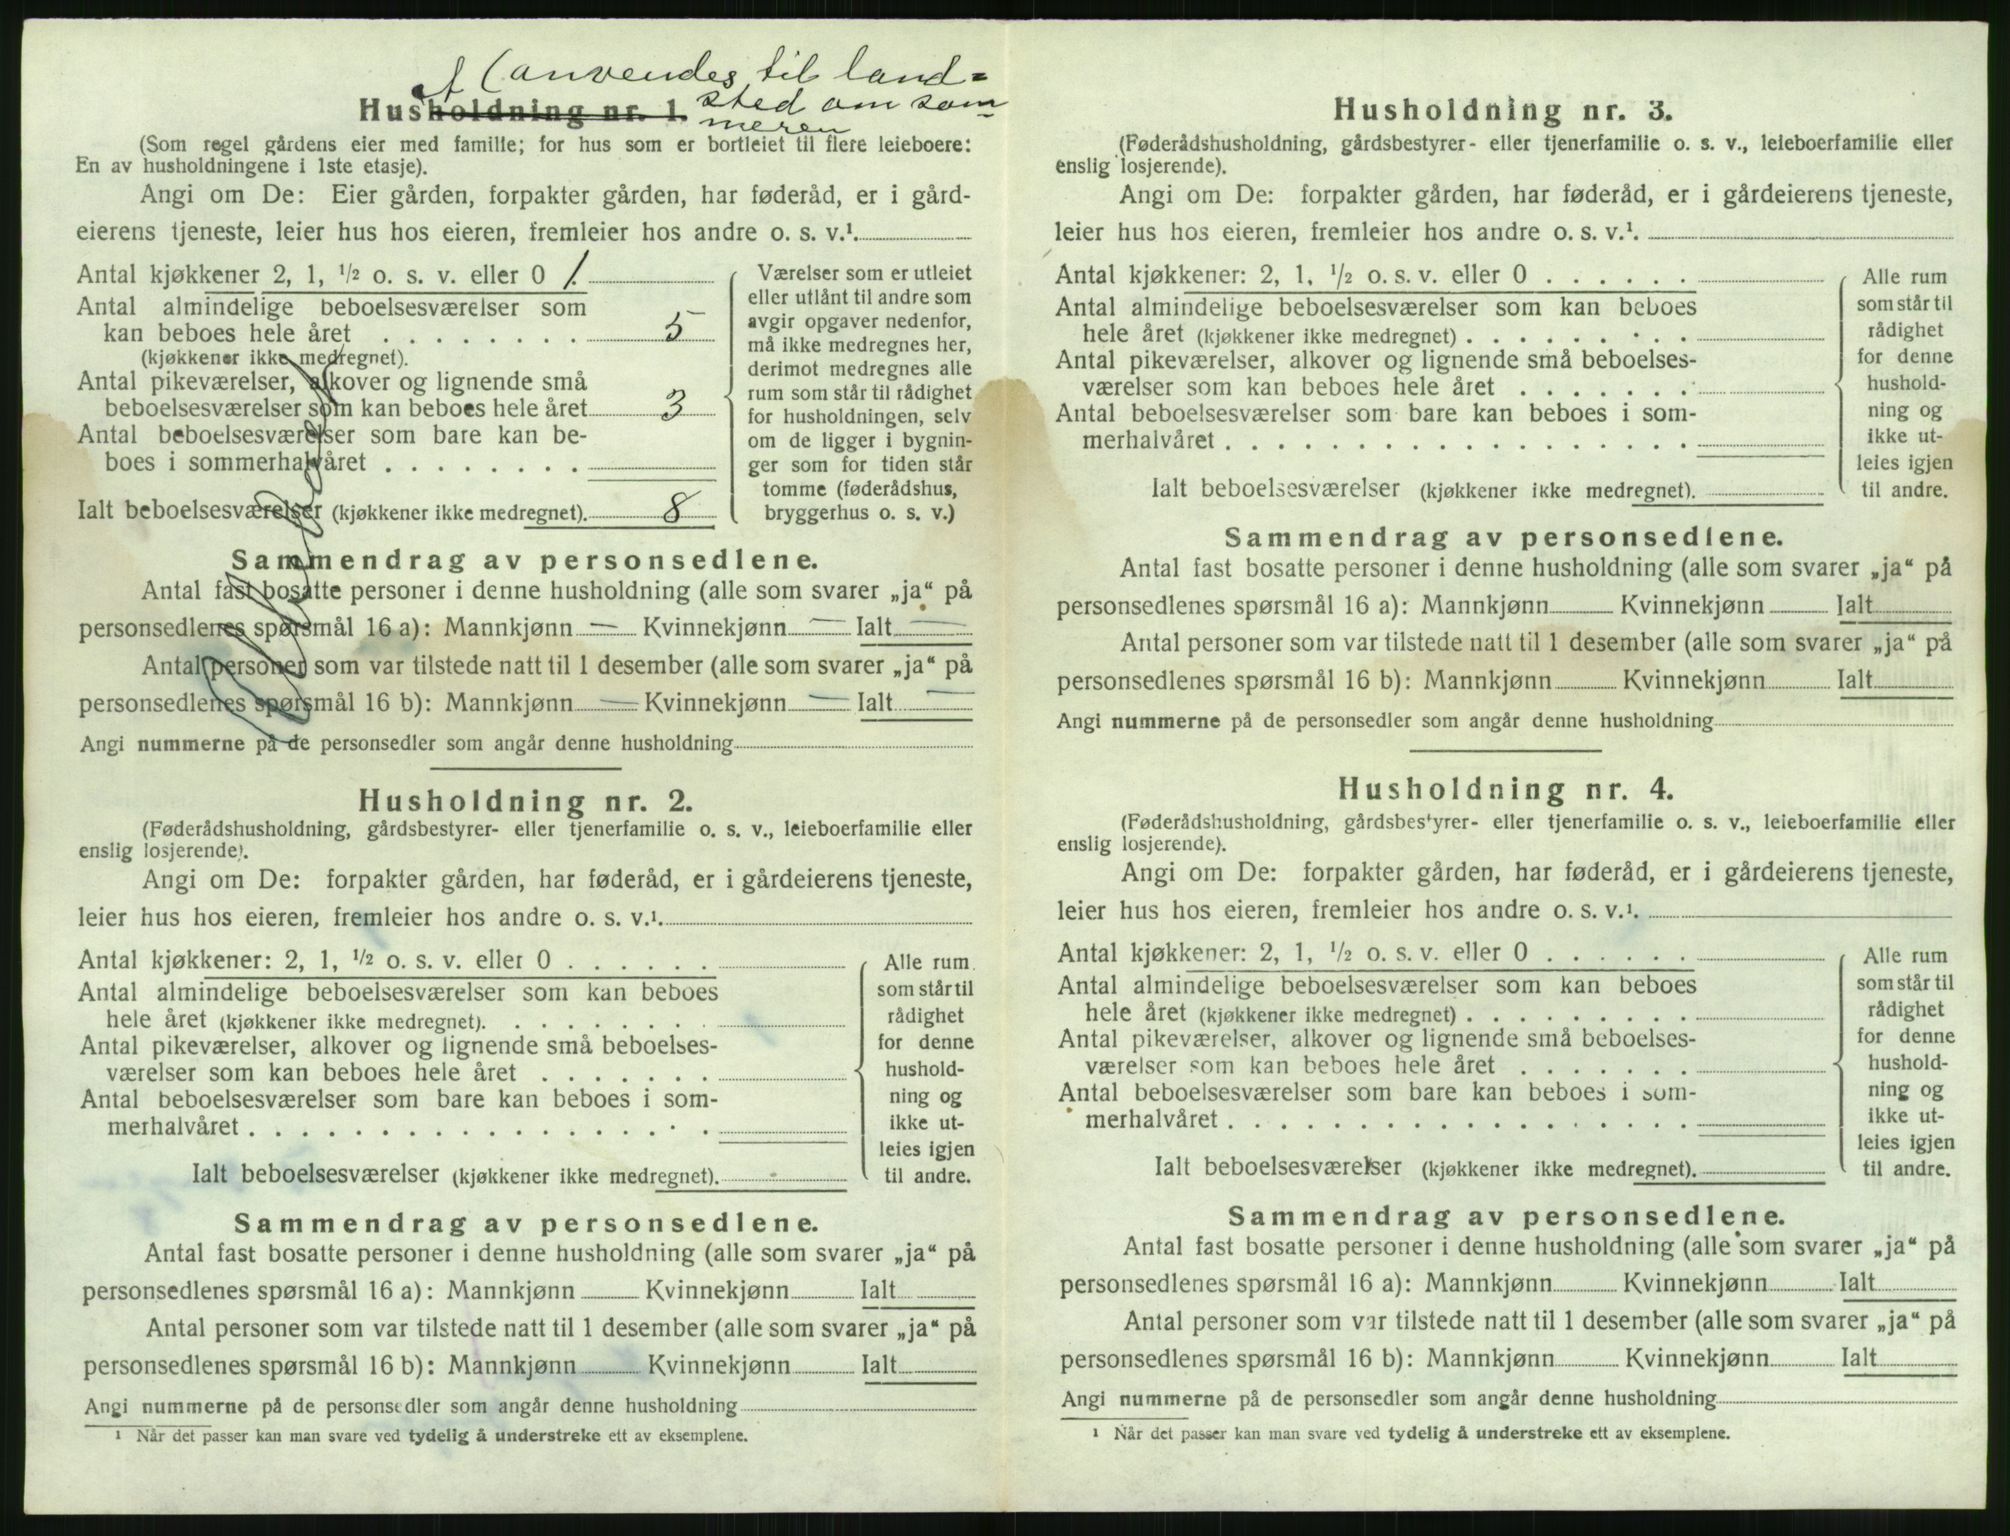 A (anvendes til land=
sted om som
meren
Husholdning nr. 1.
(Som regel gårdens eier med familie; for hus som er bortleiet til flere leieboere:
En av husholdningene i 1ste etasje).
Angi om De: Eier gården, forpakter gården, har føderåd, er i gård-
eierens tjeneste, leier hus hos eieren, fremleier hos andre o. s. v.¹.
Antal kjøkkener 2, 1, ½ o. s. v. eller 0 1.
Antal almindelige beboelsesværelser som
kan beboes hele året . . . . . . . . 5
(kjøkkener ikke medregnet).
Antal pikeværelser, alkover og lignende små
beboelsesværelser som kan beboes hele året 3
Antal beboelsesværelser som bare kan be-
boes i sommerhalvåret . . . . . . . .
Ialt beboelsesværelser (kjøkkener ikke medregnet). 8
Værelser som er utleiet
eller utlånt til andre som
avgir opgaver nedenfor,
må ikke medregnes her,
derimot medregnes alle
rum som står til rådighet
for husholdningen, selv
om de ligger i bygnin-
ger som for tiden står
tomme (føderådshus,
bryggerhus o. s. v.)
Sammendrag av personsedlene.
Antal fast bosatte personer i denne husholdning (alle som svarer „ja“ på
personsedlenes spørsmål 16 a): Mannkjønn — Kvinnekjønn — Ialt —
Antal personer som var tilstede natt til 1 desember (alle som svarer „ja“ på
personsedlenes spørsmål 16 b): Mannkjønn — Kvinnekjønn — Ialt —
Angi nummerne på de personsedler som angår denne husholdning
Husholdning nr. 2.
(Føderådshusholdning, gårdsbestyrer- eller tjenerfamilie o. s. v., leieboerfamilie eller
enslig losjerende).
Angi om De: forpakter gården, har føderåd, er i gårdeierens tjeneste,
leier hus hos eieren, fremleier hos andre o. s. v.¹.
Antal kjøkkener: 2, 1, ½ o. s. v. eller 0 . . . . . .
Antal almindelige beboelsesværelser som kan beboes
hele året (kjøkkener ikke medregnet). . . . . . . . .
Antal pikeværelser, alkover og lignende små beboelses-
værelser som kan beboes hele året . . . . . . .
Antal beboelsesværelser som bare kan beboes i som-
merhalvåret . . . . . . . . . . . . . . . . . .
Ialt beboelsesværelser (kjøkkener ikke medregnet).
Alle rum
som står til
rådighet
for denne
hushold-
ning og
ikke ut-
leies igjen
til andre.
Sammendrag av personsedlene.
Antal fast bosatte personer i denne husholdning (alle som svarer „ja“ på
personsedlenes spørsmål 16 a): Mannkjønn Kvinnekjønn Ialt
Antal personer som var tilstede natt til 1 desember (alle som svarer „ja“ på
personsedlenes spørsmål 16 b): Mannkjønn Kvinnekjønn Ialt
Angi nummerne på de personsedler som angår denne husholdning
¹ Når det passer kan man svare ved tydelig å understreke ett av eksemplene.
Husholdning nr. 3.
(Føderådshusholdning, gårdsbestyrer- eller tjenerfamilie o. s. v., leieboerfamilie eller
enslig losjerende).
Angi om De: forpakter gården, har føderåd, er i gårdeierens tjeneste,
leier hus hos eieren, fremleier hos andre o. s. v.¹.
Antal kjøkkener: 2, 1, ½ o. s. v. eller 0 . . . . . .
Antal almindelige beboelsesværelser som kan beboes
hele året (kjøkkener ikke medregnet) . . . . . . . . .
Antal pikeværelser, alkover og lignende små beboelses-
værelser som kan beboes hele året . . . . . . .
Antal beboelsesværelser som bare kan beboes i som-
merhalvåret . . . . . . . . . . . . . . . . . .
Ialt beboelsesværelser (kjøkkener ikke medregnet).
Alle rum
som står til
rådighet
for denne
hushold-
ning og
ikke ut-
leies igjen
til andre.
Sammendrag av personsedlene.
Antal fast bosatte personer i denne husholdning (alle som svarer „ja“ på
personsedlenes spørsmål 16 a): Mannkjønn Kvinnekjønn Ialt
Antal personer som var tilstede natt til 1 desember (alle som svarer „ja“ på
personsedlenes spørsmål 16 b): Mannkjønn Kvinnekjønn Ialt
Angi nummerne på de personsedler som angår denne husholdning
Husholdning nr. 4.
(Føderådshusholdning, gårdsbestyrer- eller tjenerfamilie o. s. v., leieboerfamilie eller
enslig losjerende).
Angi om De: forpakter gården, har føderåd, er i gårdeierens tjeneste,
leier hus hos eieren, fremleier hos andre o. s. v.¹.
Antal kjøkkener: 2, 1, ½ o. s. v. eller 0 . . . . . .
Antal almindelige beboelsesværelser som kan beboes
hele året (kjøkkener ikke medregnet) . . . . . . . . .
Antal pikeværelser, alkover og lignende små beboelses-
værelser som kan beboes hele året . . . . . . .
Antal beboelsesværelser som bare kan beboes i som-
merhalvåret . . . . . . . . . . . . . . . . . .
Ialt beboelsesværelser (kjøkkener ikke medregnet).
Alle rum
som står til
rådighet
for denne
hushold-
ning og
ikke ut-
leies igjen
til andre.
Sammendrag av personsedlene.
Antal fast bosatte personer i denne husholdning (alle som svarer „ja“ på
personsedlenes spørsmål 16 a): Mannkjønn Kvinnekjønn Ialt
Antal personer som var tilstede natt til 1 desember (alle som svarer „ja“ på
personsedlenes spørsmål 16 b): Mannkjønn Kvinnekjønn Ialt
Angi nummerne på de personsedler som angår denne husholdning
¹ Når det passer kan man svare ved tydelig å understreke ett av eksemplene.